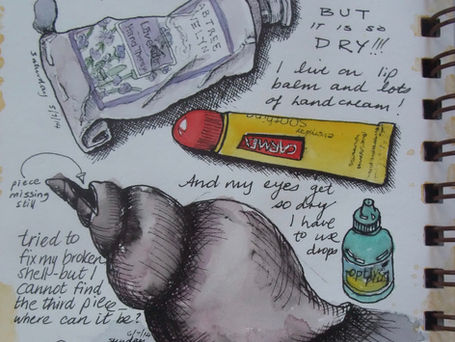 BUT
IT IS SO
DRY!!!
I live on lip
balm and lots
of hand cream!
CRABTREE
EVELYN
Lavender
Saturday
CARMEX
And my eyes get
so dry
I have
to use
drops
Optive
plus
piece
missing
still
tried to
fix my broken
shell-but I
cannot find
the third piece_
where can it be?